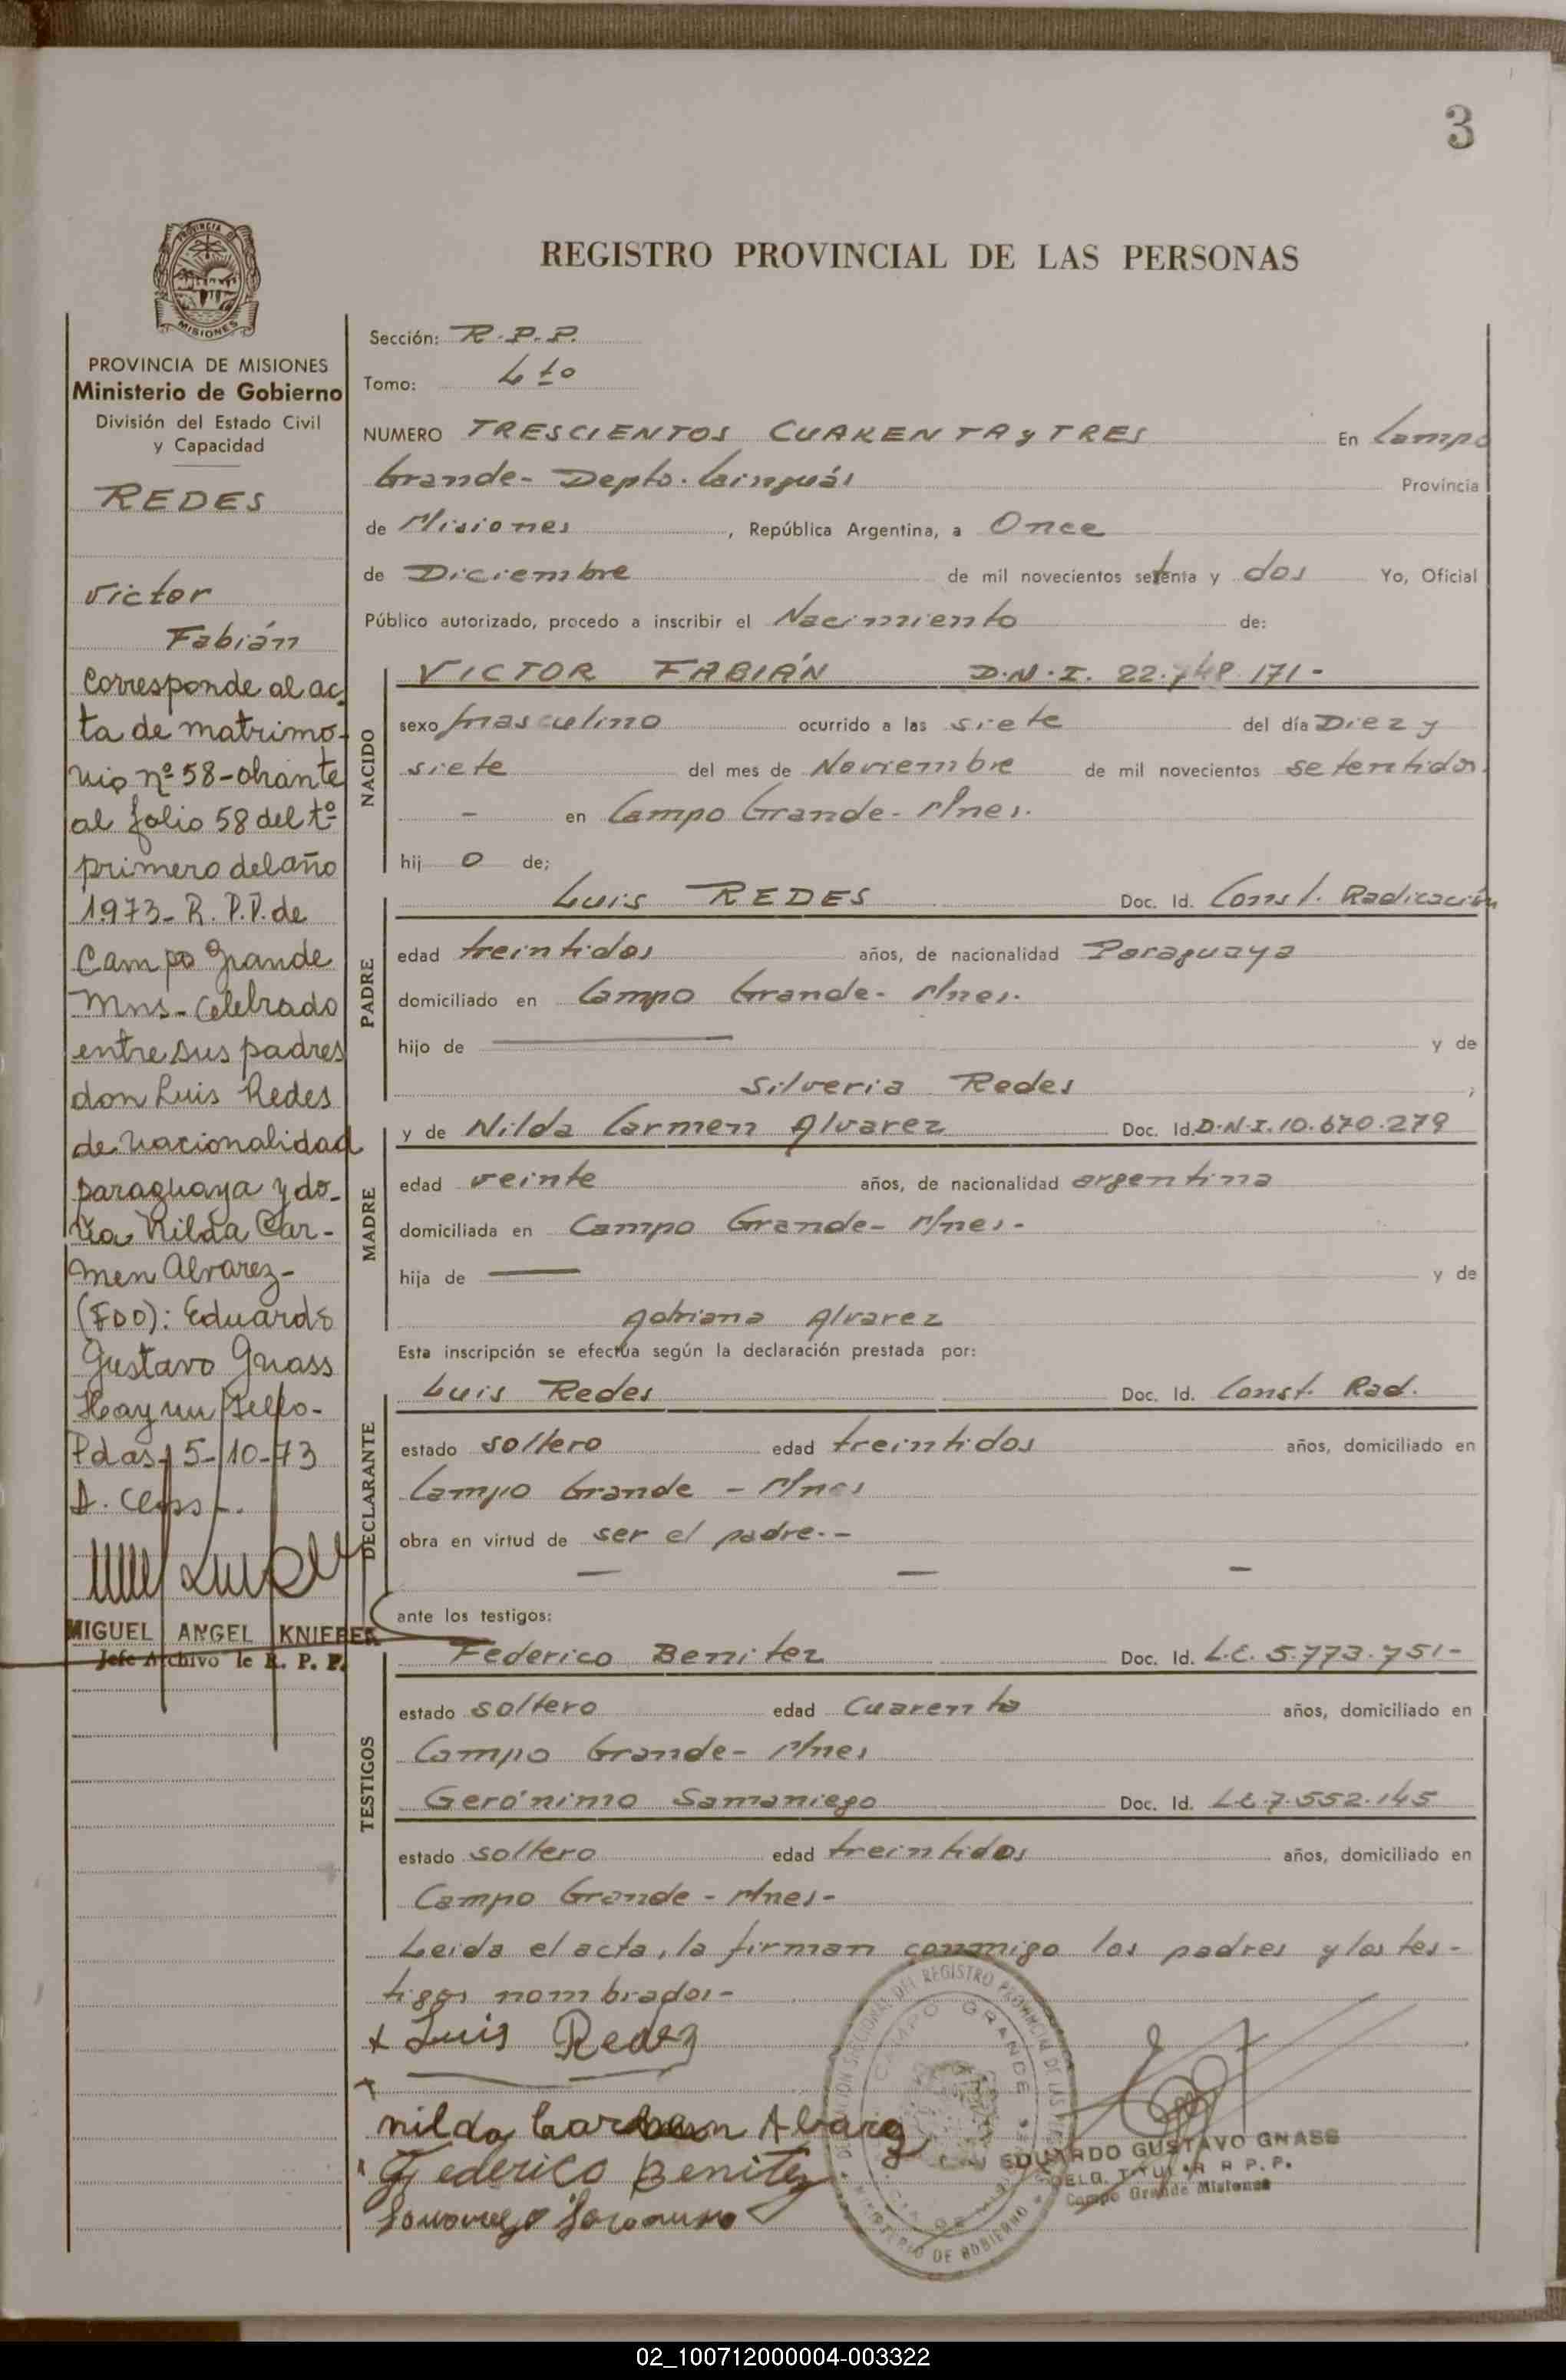 3
PROVINCIA DE
MISIONES
PROVINCIA DE MISIONES
Ministerio de Gobierno
División del Estado Civil
y Capacidad
REDES
Victor
Fabián
Corresponde al ac-
ta de matrimo-
nio nº 58-obrante
al folio 58 del tº
primero del año
1973- R. P.P. de
Campo Grande
Mns- celebrado
entre sus padres
don Luis Redes
de nacionalidad
paraguaya y do-
ña Nilda Car-
men Alvarez-
(FDO): Eduardo
Gustavo Gnass
Hay un sello-
Pdas, 5-10-73
MIGUEL ANGEL KNIEPER
Jefe Archivo de R. P. P.
REGISTRO PROVINCIAL DE LAS PERSONAS
Sección: R.P.P.
Tomo: 4to
NUMERO TRESCIENTOS CUARENTA y TRES En Campo
Grande- Depto. Cainguás Provincia
de Misiones, República Argentina, a Once
de Diciembre de mil novecientos setenta y dos Yo, Oficial
Público autorizado, procedo a inscribir el Nacimiento de:
NACIDO
VICTOR FABIÁN D.N.I. 22.748.171-
sexo masculino ocurrido a las siete del día Diez y
siete del mes de Noviembre de mil novecientos setentidos.
- en Campo Grande- Mnes.
hij o de;
PADRE
Luis REDES Doc. Id. Const. Radicación
edad treintidos años, de nacionalidad Paraguaya
domiciliado en Campo Grande- Mnes.
hijo de — y de
Silveria Redes ;
MADRE
y de Nilda Carmen Alvarez Doc. Id. D.N.I. 10.670.279
edad veinte años, de nacionalidad argentina
domiciliada en Campo Grande- Mnes-
hija de — y de
Adriana Alvarez
Esta inscripción se efectúa según la declaración prestada por:
DECLARANTE
Luis Redes Doc. Id. Const. Rad.
estado soltero edad treintidos años, domiciliado en
Campo Grande - Mnes
obra en virtud de ser el padre.-
— — —
ante los testigos:
TESTIGOS
Federico Benitez Doc. Id. L.E. 5.773.751-
estado soltero edad Cuarenta años, domiciliado en
Campo Grande- Mnes
Gerónimo Samaniego Doc. Id. L.E. 7.552.145
estado soltero edad treintidos años, domiciliado en
Campo Grande - Mnes-
Leida el acta, la firman conmigo los padres y los tes-
tigos nombrados-
x Luis Redez
nilda Carmen Alvarez
Federico Benitez
DEL REGISTRO PROVINCIAL DE LAS
CAMPO GRANDE
MINISTERIO DE GOBIERNO
EDUARDO GUSTAVO GNASS
DELG. TITULAR R P. P.
Campo Grande Misiones
02_100712000004-003322